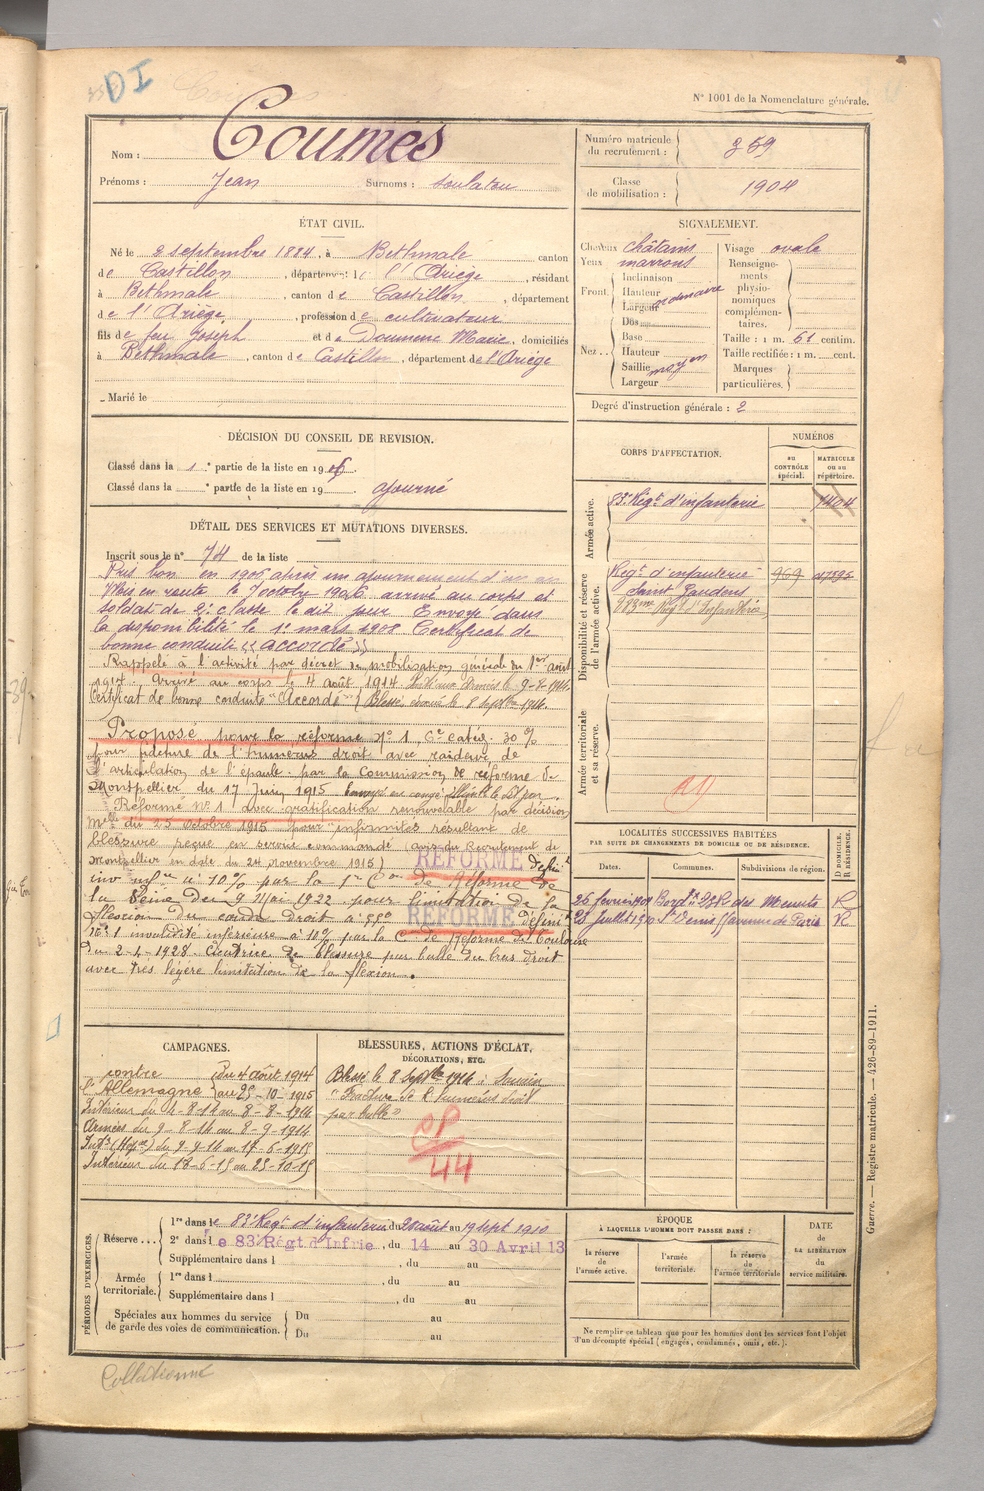 DI
N° 1001 de la Nomenclature générale.
Nom : Coumes
Prénoms : Jean Surnoms : soulatou
Numéro matricule du recrutement : 359
Classe de mobilisation : 1904
ÉTAT CIVIL.
Né le 2 septembre 1884, à Bethmale, canton
de Castillon, département de l'Ariège, résidant
à Bethmale, canton de Castillon, département
de l'Ariège, profession de cultivateur
fils de feu Joseph et de Doumenc Marie, domiciliés
à Bethmale, canton de Castillon, département de l'Ariège
Marié le
SIGNALEMENT.
Cheveux châtains
Yeux marrons
Front Inclinaison
Hauteur
Largeur ordinaire
Nez Dos
Base
Hauteur
Saillie moyen
Largeur
Visage ovale
Renseignements physionomiques complémentaires.
Taille : 1 m. 61 centim.
Taille rectifiée : 1 m. cent.
Marques particulières.
Degré d'instruction générale : 2
DÉCISION DU CONSEIL DE REVISION.
Classé dans la 1 e partie de la liste en 1906
Classé dans la e partie de la liste en 19 . ajourné
DÉTAIL DES SERVICES ET MUTATIONS DIVERSES.
Inscrit sous le n° 74 de la liste
Pris bon en 1906 après un ajournement d'un an
Mis en route le 7 octobre 1906 arrivé au corps et
soldat de 2e classe le dit jour Envoyé dans
la disponibilité le 1er mars 1908 Certificat de
bonne conduite "accordé"
Rappelé à l'activité par décret de mobilisation générale du 1er août
1914. Arrivé au corps le 4 août 1914. le 9-8-1914.
Certificat de bonne conduite "Accordé" Blessé, évacué le 8 septbre 1914.
Proposé pour la réforme n° 1 6e catég. 30 %
pour fracture de l'humérus droit avec raideur de
l'articulation de l'épaule. par la Commission de réforme de
Montpellier du 17 Juin 1915
Réformé N° 1 avec gratification renouvelable par décision
Mlle du 25 Octobre 1915 pour "infirmités résultant de
blessure reçue en service commandé (avis du Recrutement de
Montpellier en date du 24 Novembre 1915)
REFORME Défin
inv infre à 10% par la 1re Con de Réforme de
la Seine du 9 Mai 1922. pour limitation de la
flexion du coude droit à
REFORME Définit
N° 1 invalidité inférieure à 10% par la Con de Réforme de Toulouse
du 2-4-1928 Cicatrice de blessure par balle du bras droit
avec très légère limitation de la flexion.
CORPS D'AFFECTATION.
NUMÉROS
au CONTRÔLE spécial.
MATRICULE ou au répertoire.
Armée active.
83e Régt d'infanterie 1404
Disponibilité et réserve de l'armée active.
Régt d'infanterie 969
Saint Gaudens
Régt d'Infanterie
Armée territoriale et sa réserve.
LOCALITÉS SUCCESSIVES HABITÉES
PAR SUITE DE CHANGEMENTS DE DOMICILE OU DE RÉSIDENCE.
Dates. Communes. Subdivisions de région. D DOMICILE. R RÉSIDENCE.
R
R
CAMPAGNES.
contre du 4 août 1914
l'Allemagne au 25-10-1915
Intérieur du 4-8-14 au 8-8-1914
Armées du 9-8-14 au 8-9-1914
du 9-9-14 au 17-6-1915
Intérieur du 18-6-15 au 25-10-15
BLESSURES, ACTIONS D'ÉCLAT,
DÉCORATIONS, ETC.
Blessé le 8 Septbre 1914 :
"Fracture de l'humérus droit
par balle"
44
PÉRIODES D'EXERCICES.
Réserve ... 1re dans le 83e Régt d'infanterie du 28 août au 19 sept 1910
2e dans le 83 Régt d'Infrie, du 14 au 30 Avril 13
Supplémentaire dans l , du au
Armée territoriale. 1re dans l du au
Supplémentaire dans l , du au
Spéciales aux hommes du service de garde des voies de communication. Du au
Du au
ÉPOQUE
À LAQUELLE L'HOMME DOIT PASSER DANS :
la réserve de l'armée active.
l'armée territoriale.
la réserve de l'armée territoriale
DATE DE LA LIBÉRATION du service militaire.
Ne remplir ce tableau que pour les hommes dont les services font l'objet
d'un décompte spécial (engagés, condamnés, omis, etc.).
Guerre. — Registre matricule. — 426-89-1911.
Collationné